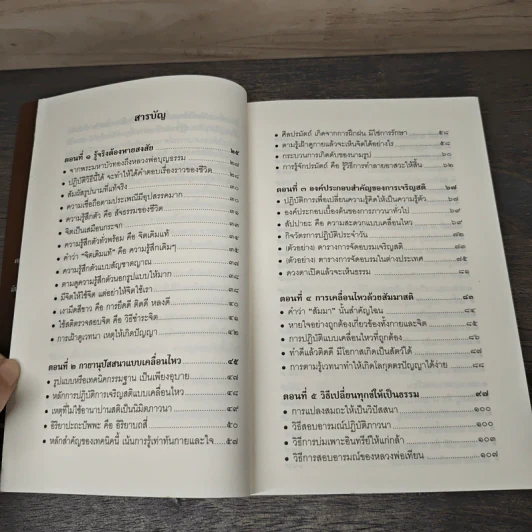 สารบัญ
ตอนที่ ๑ รู้จริงต้องหายสงสัย ๒๕
• จากพระมหาบัวทองถึงหลวงพ่อบุญธรรม ๒๘
• ปฏิบัติวิธีนี้ได้ จะทำให้ได้คำตอบเรื่องราวของชีวิต
• สัมผัสรูปนามที่แท้จริง
• ความเชื่อถือตามประเพณีมีอุปสรรคมาก
• ความรู้สึกตัว คือ สัจธรรมของชีวิต
• จิตเป็นเสมือนกระจก
• ความรู้สึกตัวทั่วพร้อม คือ จิตเดิมแท้
• คำว่า "จิตเดิมแท้" คือ ความรู้สึกเดิมๆ
• ความรู้สึกตัวแบบสัญชาตญาณ
• ตามดูความรู้สึกตัวนอกรูปแบบให้มาก
• มีจิตให้ใช้จิต แต่อย่าให้จิตใช้เรา
• เงามืดสีขาว คือ การยึดดี ติดดี หลงดี
• ใช้สติตรวจสอบจิต คือ วิธีชำระจิต
• การเฝ้าดูเวทนา เหตุให้เกิดปัญญา ๔๒
ตอนที่ ๒ กายานุปัสสนาแบบเคลื่อนไหว ๔๕
• รูปแบบหรือเทคนิคกรรมฐาน เป็นเพียงอุบาย ๔๗
• หลักการปฏิบัติการเจริญสติแบบเคลื่อนไหว ๔๘
• เหตุที่ไม่ใช้อานาปานสติเป็นนิมิตภาวนา ๔๙
• อิริยาปะถะปัพพะ คือ อิริยาบถสี่ ๕๐
• หลักสำคัญของเทคนิคนี้ เน้นการรู้เท่าทันกายและใจ ๕๗
• ศีลปรมัตถ์ เกิดจากการฝึกฝน มิใช่การรักษา ๕๘
• ตามรู้เฝ้าดูกายแล้วจะเห็นจิตได้อย่างไร ๕๙
• กระบวนการเกิดดับของนามรูป ๖๐
• การรู้จักปรมัตถ์ คือ รู้วิธีการทำลายอาสวะให้สิ้น
ตอนที่ ๓ องค์ประกอบสำคัญของการเจริญสติ ๖๗
• ปฏิบัติการเพื่อเปลี่ยนความรู้คิดให้เป็นความรู้ตัว
• องค์ประกอบเบื้องต้นของการภาวนาทั่วไป ๖๙
• สัปปายะ คือ ความสะดวกแบบเคลื่อนไหว ๖๙
• กิจวัตรการปฏิบัติประจำวัน ๗๒
• (ตัวอย่าง) ตารางการจัดอบรมเจริญสติ
• (ตัวอย่าง) ตารางการจัดอบรมในต่างประเทศ
• ดวงตาเปิดแล้วจะเห็นธรรม ๘๑
ตอนที่ ๔ การเคลื่อนไหวด้วยสัมมาสติ ๘๓
• คำว่า "สัมมา" นั้นสำคัญไฉน ๘๔
• หายใจอย่างถูกต้องเกี่ยวข้องทั้งกายและจิต ๘๕
• การปฏิบัติแบบเคลื่อนไหวที่ถูกต้อง
• ทำดีแล้วติดดี มีโอกาสเกิดเป็นสัตว์ได้
• การตามรู้เวทนาทำให้เกิดโลกุตตรปัญญาได้ง่าย
ตอนที่ ๕ วิธีเปลี่ยนทุกข์ให้เป็นธรรม ๙๗
• การแปลงสมถะให้เป็นวิปัสสนา ๑๐๐
• วิธีสอบอารมณ์ปฏิบัติภาวนา ๑๐๐
• วิธีการบ่มเพาะอินทรีย์ให้แก่กล้า
• วิธีการสอบอารมณ์ของหลวงพ่อเทียน ๑๐๗